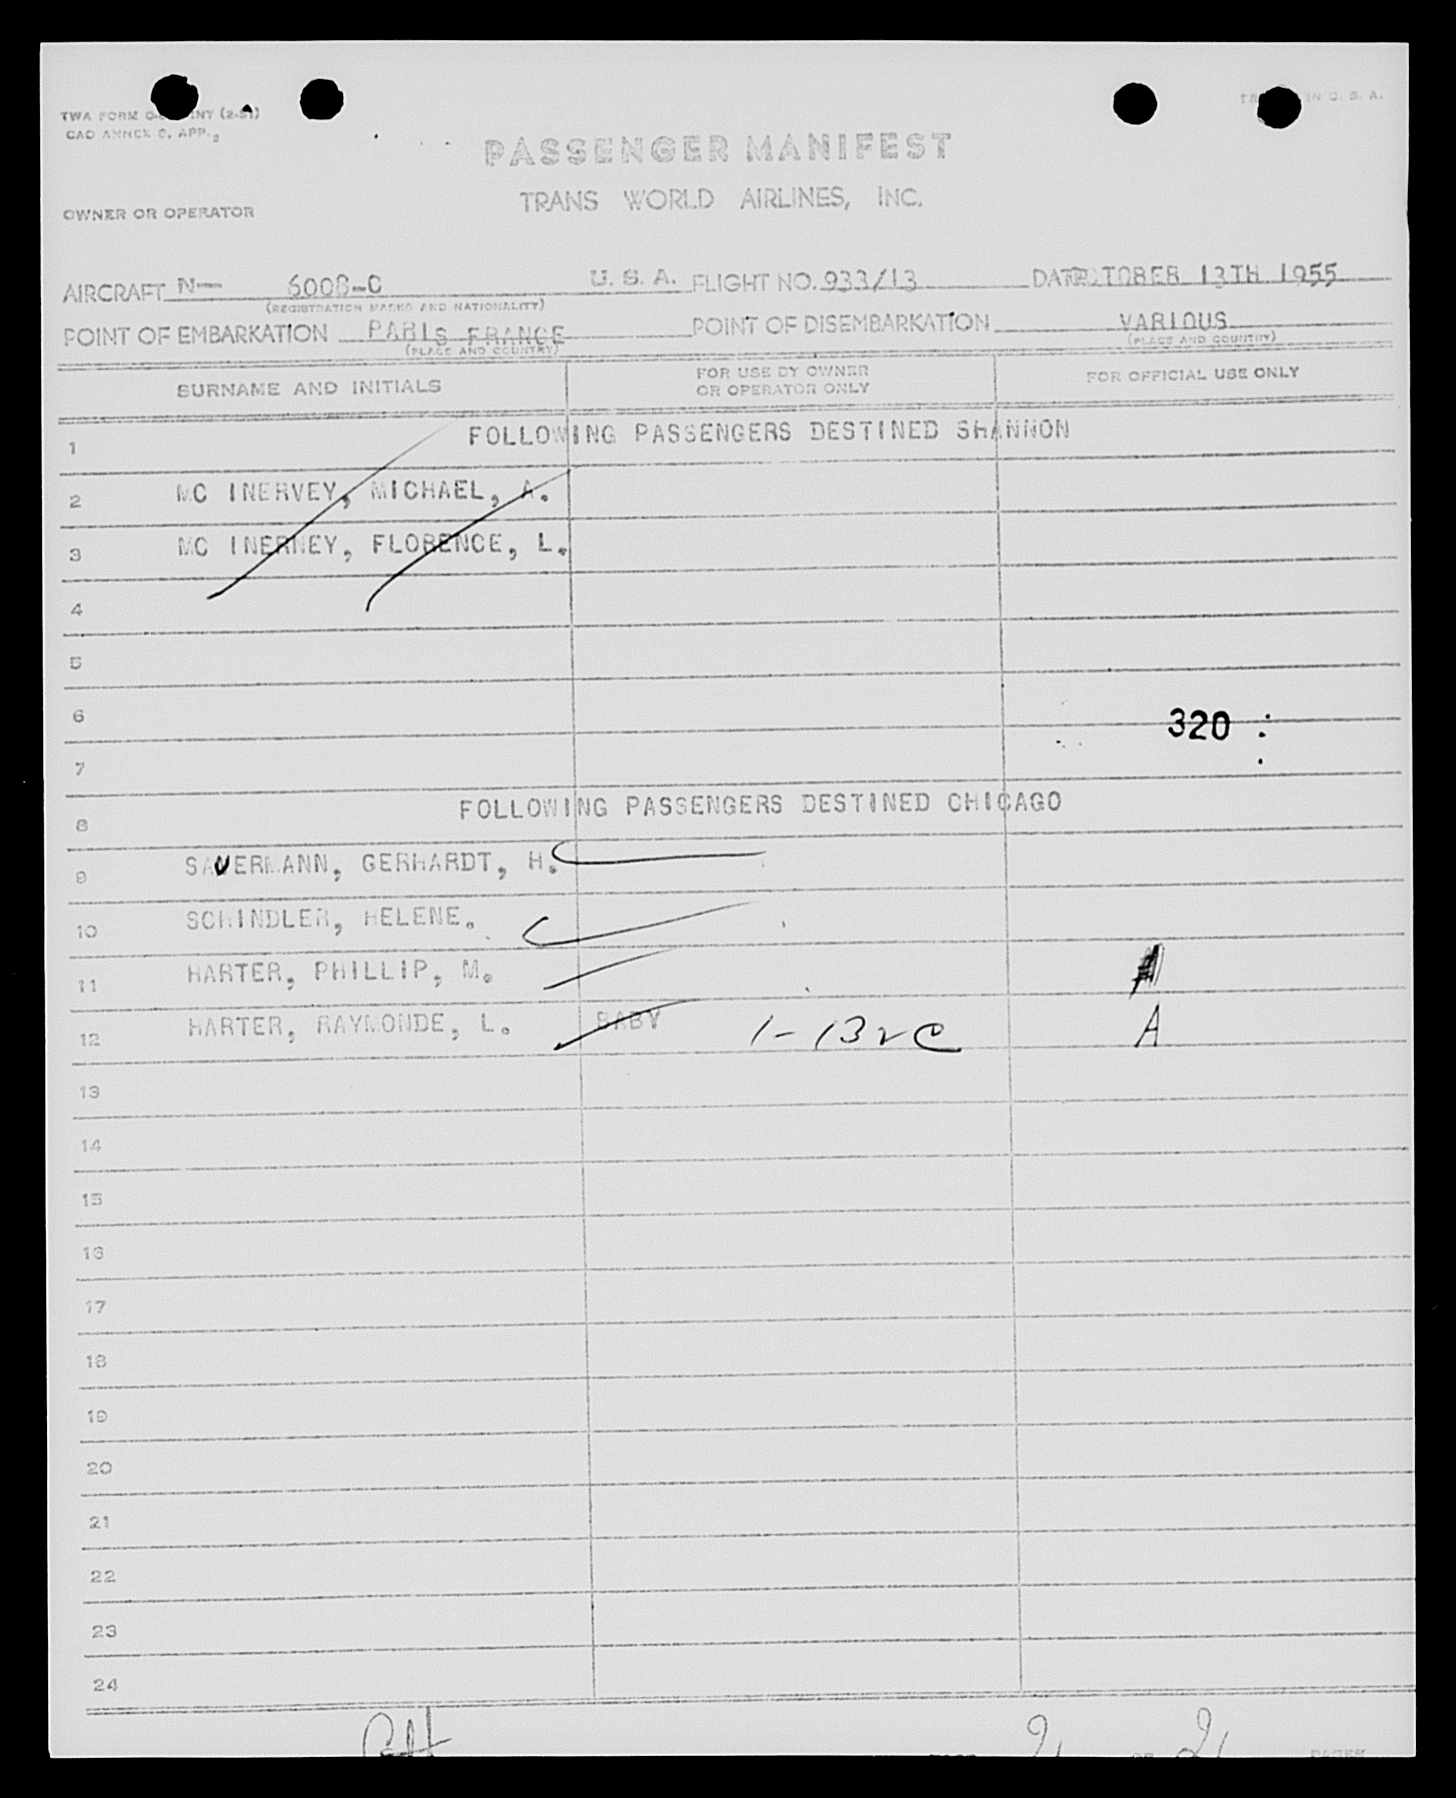 TWA FORM
CAO ANNEX 9, APP.
IN U. S. A.
PASSENGER MANIFEST
TRANS WORLD AIRLINES, INC.
OWNER OR OPERATOR
AIRCRAFT N— 6008-C U. S. A. FLIGHT NO. 933/13 DATE OCTOBER 13TH 1955
(REGISTRATION MARKS AND NATIONALITY)
POINT OF EMBARKATION PARIS FRANCE POINT OF DISEMBARKATION VARIOUS
(PLACE AND COUNTRY) (PLACE AND COUNTRY)
SURNAME AND INITIALS FOR USE BY OWNER OR OPERATOR ONLY FOR OFFICIAL USE ONLY
1 FOLLOWING PASSENGERS DESTINED SHANNON
2 MC INERVEY, MICHAEL, A.
3 MC INERNEY, FLORENCE, L.
4
5
6 320
7
8 FOLLOWING PASSENGERS DESTINED CHICAGO
9 SAUERMANN, GERHARDT, H.
10 SCHINDLER, HELENE.
11 HARTER, PHILLIP, M.
12 HARTER, RAYMONDE, L. BABY 1-13 A
13
14
15
16
17
18
19
20
21
22
23
24